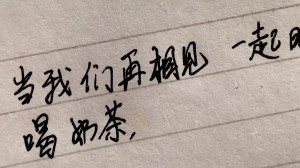 当我们再相见 一起
喝奶茶,